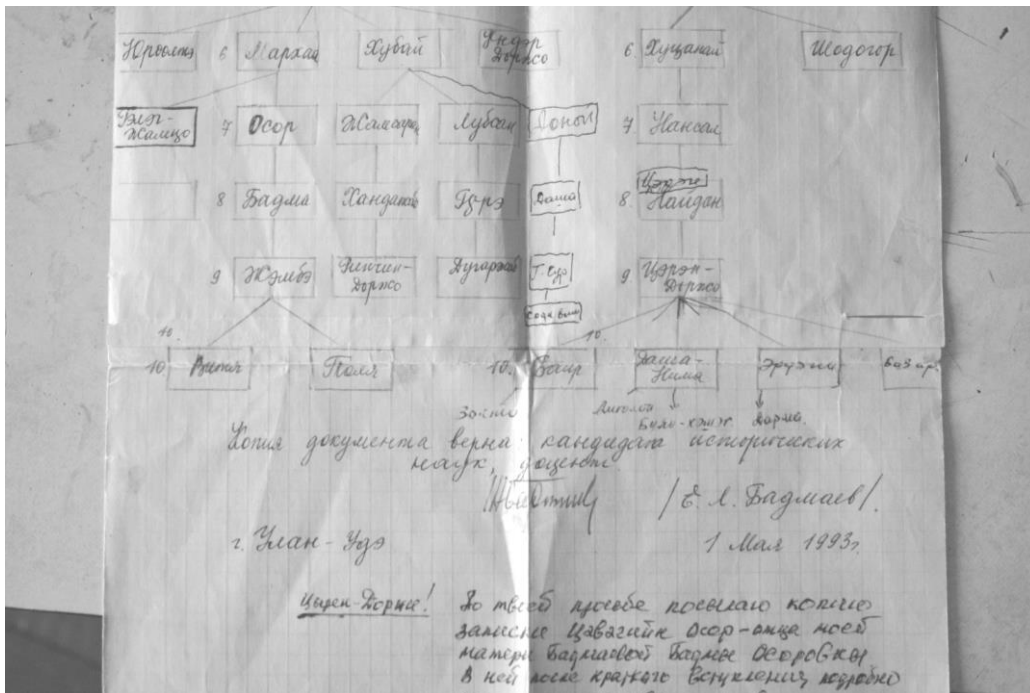 6 Мархай Хубай Ундэр Доржо 6. Хуцанай Шодогор
Гэлэг-Жамцо 7 Осор Жамсаран Лубсан Доной 7 Нансал
Цэрэже
8 Бадма Ханда Гүрэ Даша 8. Найдан
9 Жэмбэ Ринчин-Доржо Дугаржаб 9. Цэрэн-Доржо
10. 10.
10 Витя Поля 10. Баир Даша-Нима Эрдэни Базар
Зоято Анатолий Дарма.
Копия документа верна: кандидат исторических
наук, доцент
/Е. Л. Бадмаев/.
г. Улан-Удэ 1 Мая 1993г.
Цырен-Доржи! По твоей просьбе посылаю копию
записки Цэвэгийн Осор-отца моей
матери Бадмаевой Бадмы Осоровны
В ней после краткого вступления подробно